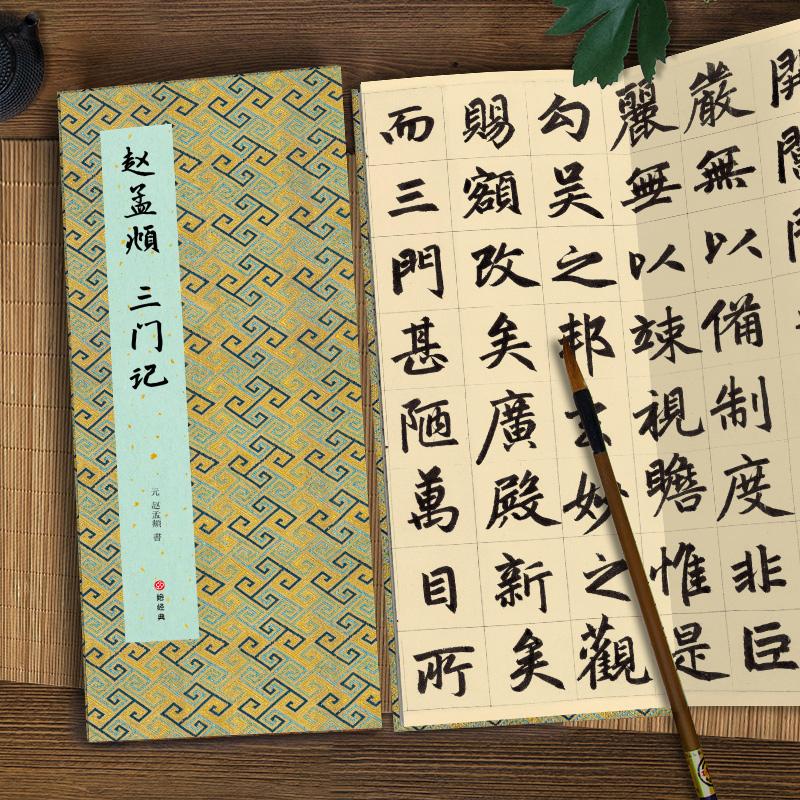 赵孟頫 三门记
元 赵孟頫 書
绘经典
嚴無以備制度非巨
麗無以竦視瞻惟是
勾吴之邦玄妙之觀
賜額改矣廣殿新矣
而三門甚陋萬目所